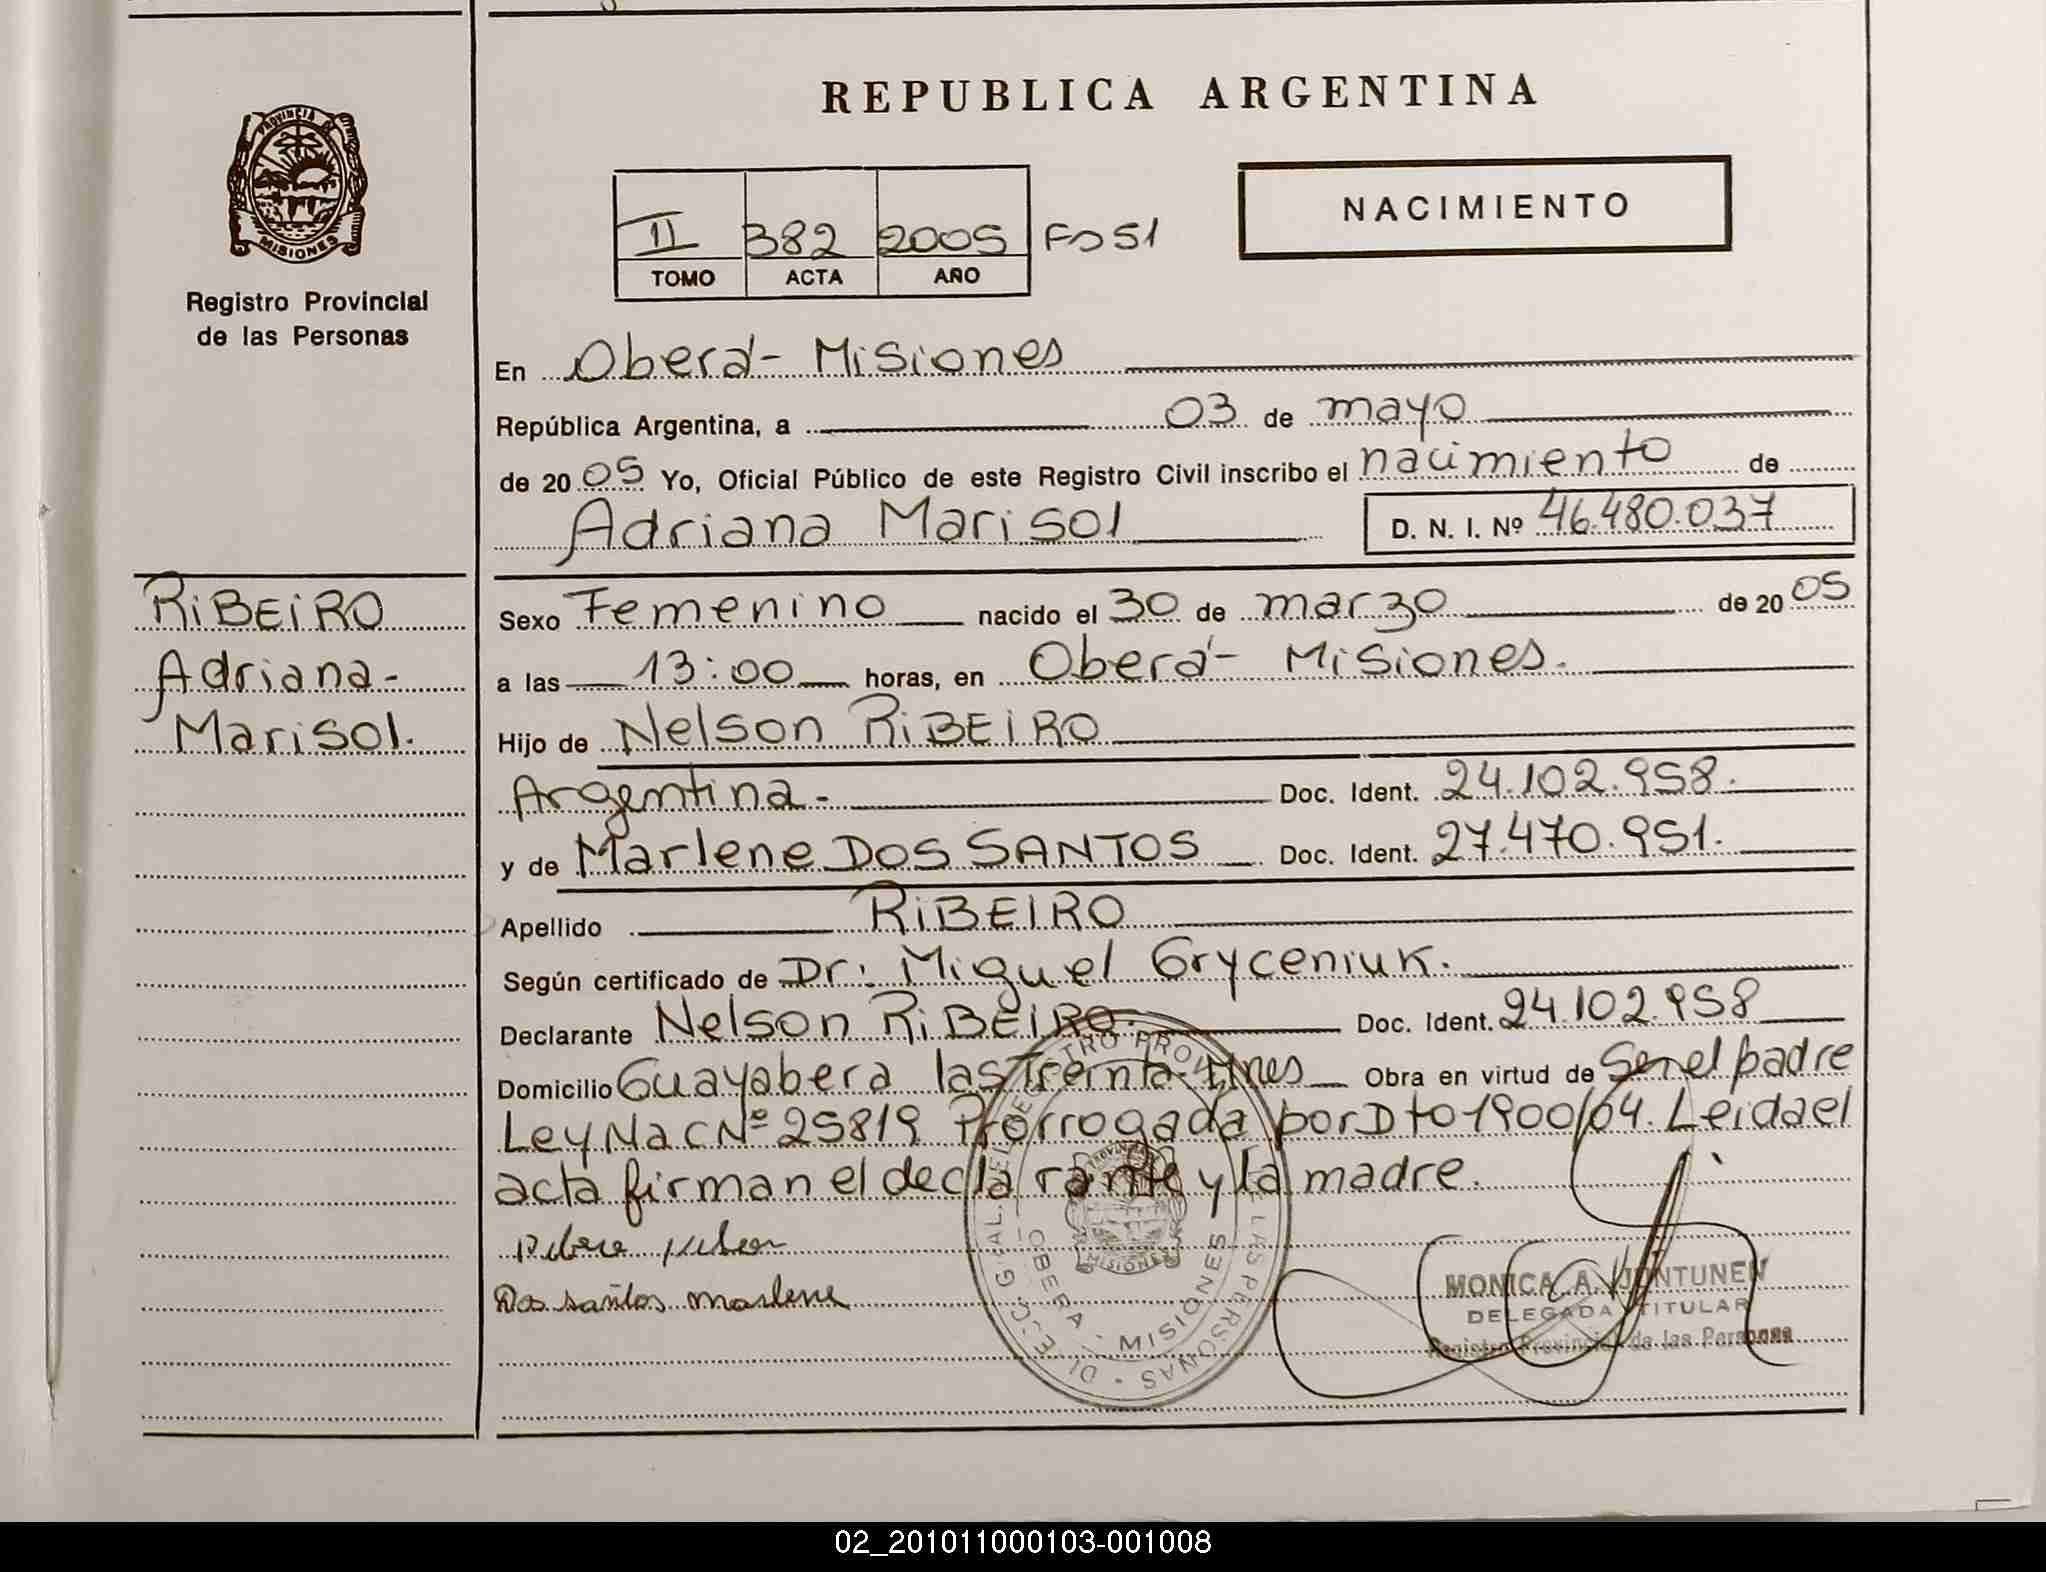 REPUBLICA ARGENTINA
PROVINCIA DE
MISIONES
Registro Provincial
de las Personas
II 382 2005 Fº 51
TOMO ACTA AÑO
NACIMIENTO
En Oberá - Misiones
República Argentina, a 03 de mayo
de 2005 Yo, Oficial Público de este Registro Civil inscribo el nacimiento de
Adriana Marisol D. N. I. Nº 46.480.037
RiBEiRO
Adriana-
Marisol.
Sexo Femenino nacido el 30 de marzo de 2005
a las 13:00 horas, en Oberá - Misiones.
Hijo de Nelson RiBEiRO
Argentina.- Doc. Ident. 24.102.958.
y de Marlene DOS SANTOS Doc. Ident. 27.470.951.
Apellido RiBEiRO
Según certificado de Dr. Miguel Gryceniuk.
Declarante Nelson RiBEiRO. Doc. Ident. 24.102.958
Domicilio Guayabera las Treinta-Mnes Obra en virtud de Ser el padre
Ley Nac Nº 25819 Prorrogada por Dto 1900/04. Leida el
acta firman el declarante y la madre.
Dos santos marlene
OBERA - MISIONES
MISIONES
MONICA A. JONTUNEN
DELEGADA TITULAR
Registro Provincial de las Personas
02_201011000103-001008